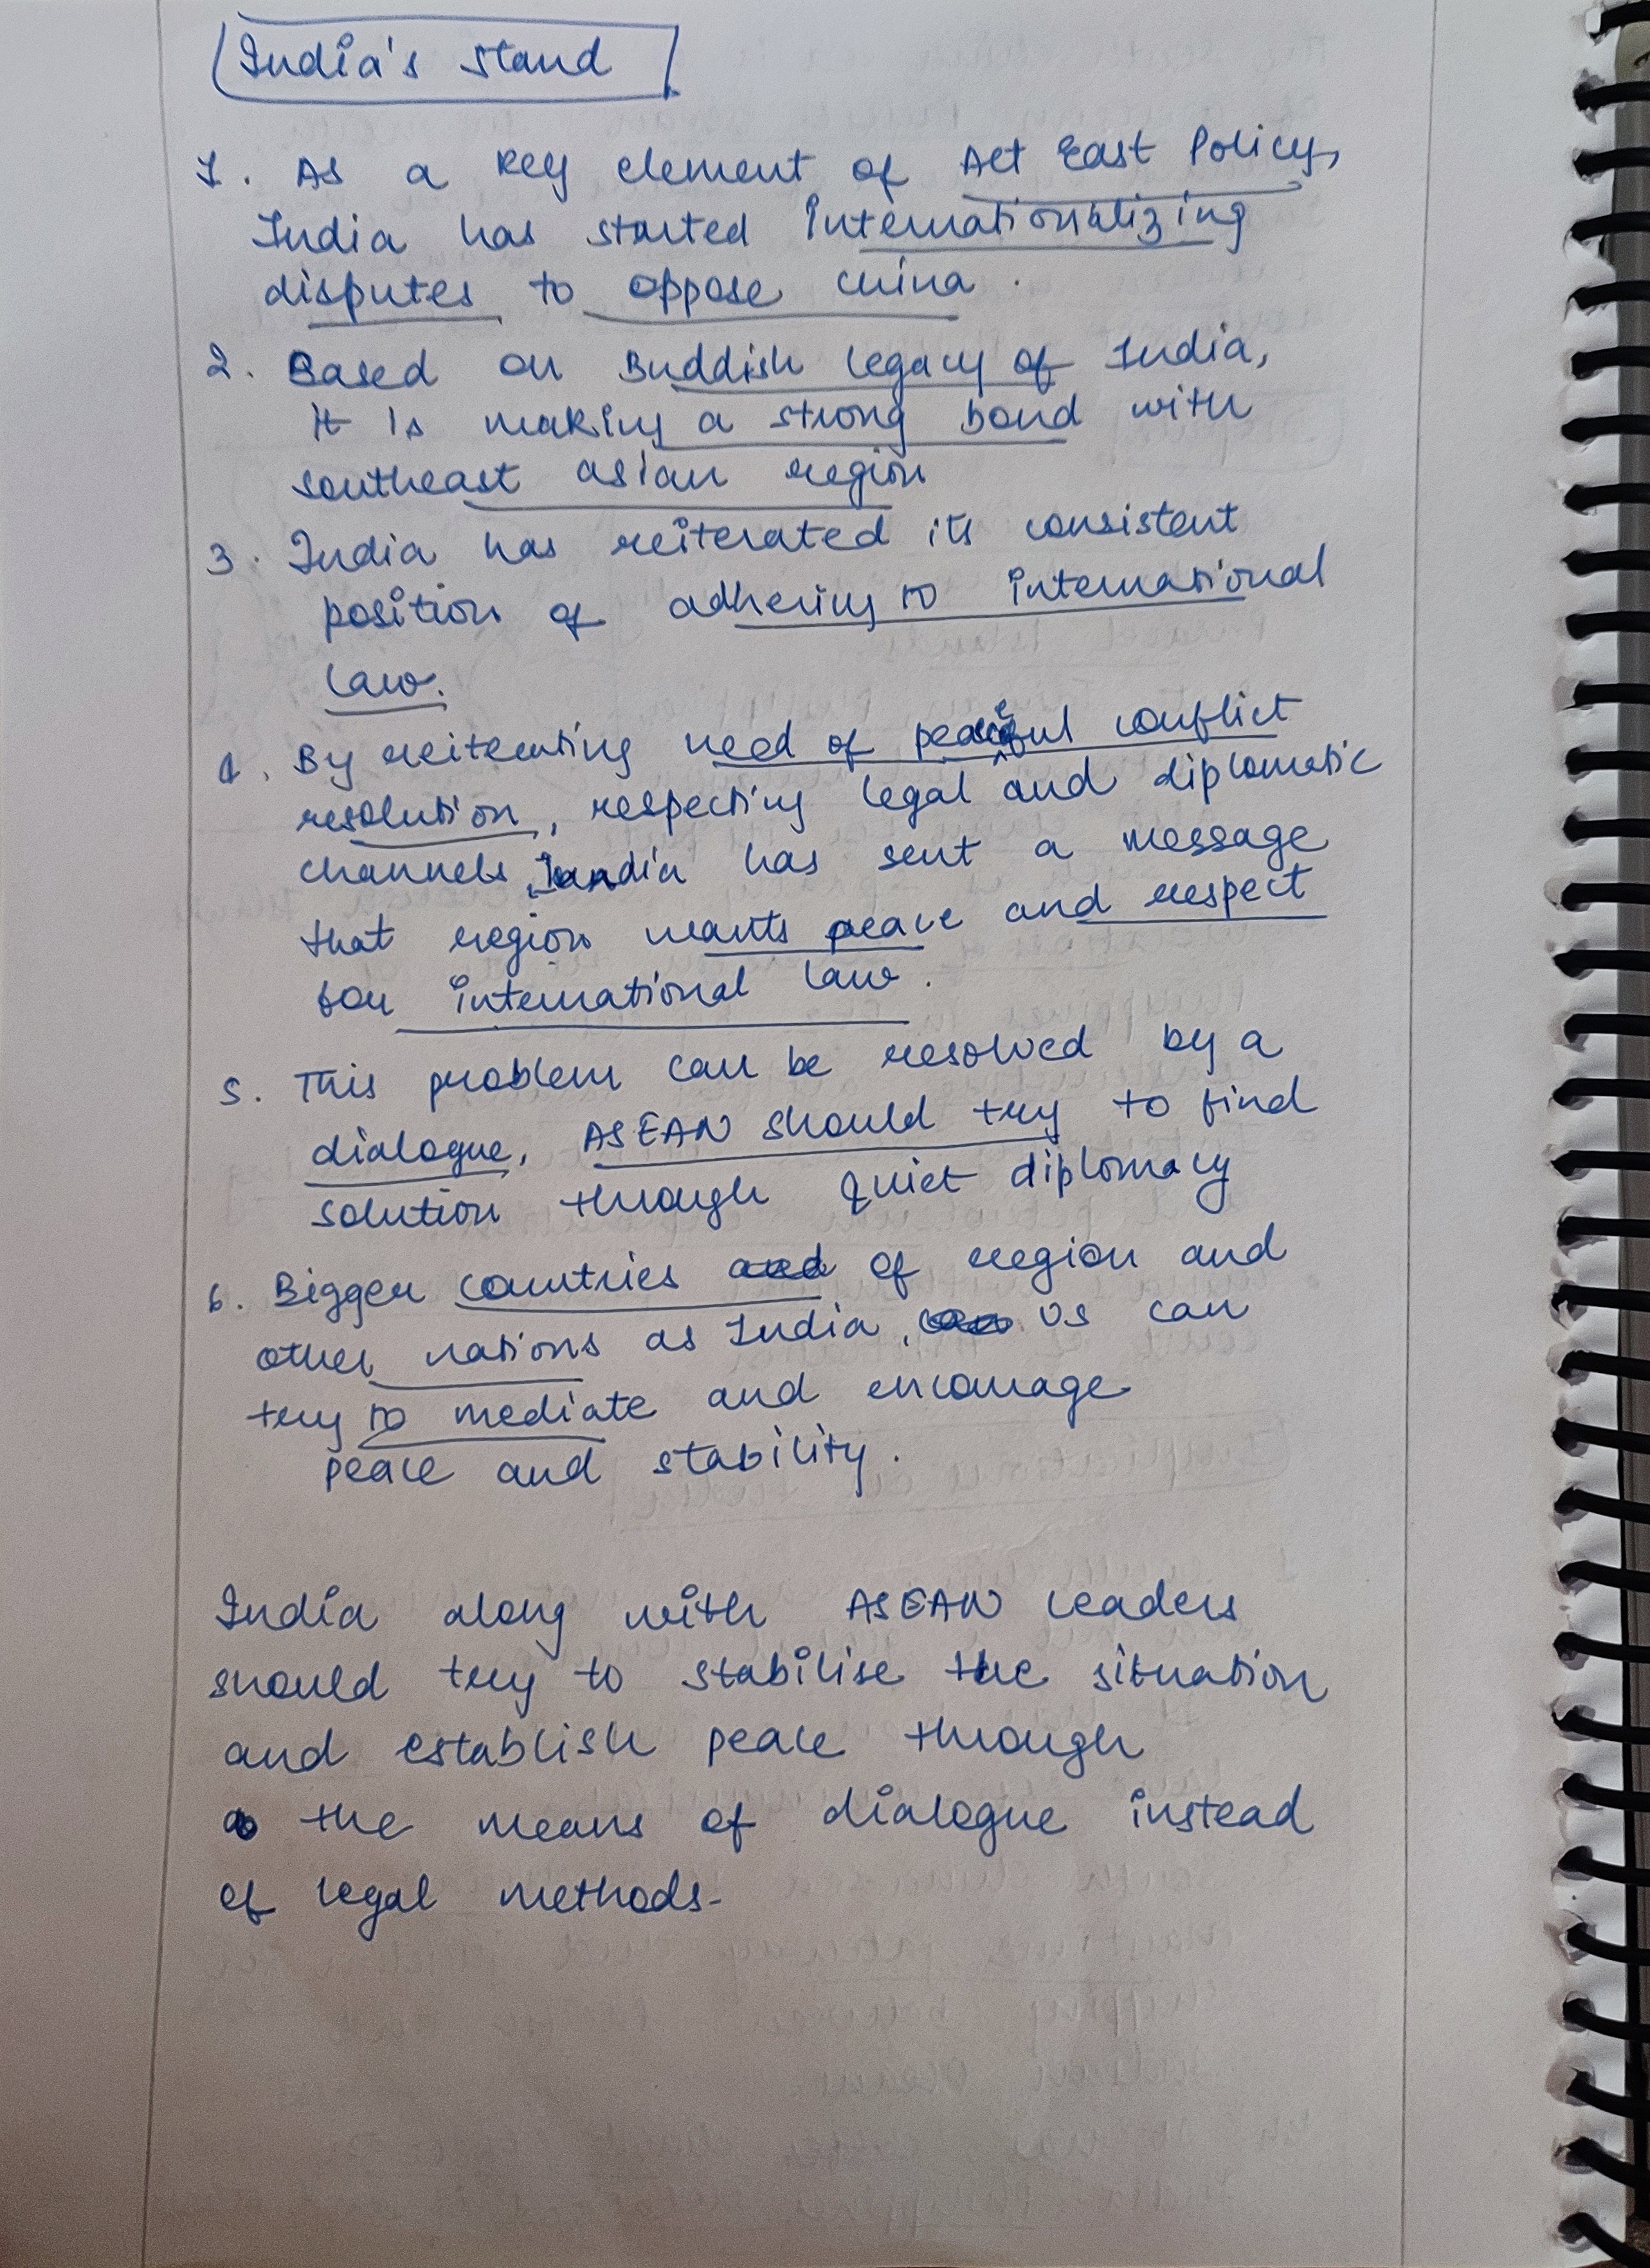 India's stand
1. As a key element of Act East Policy,
India has started Internationalizing
disputes to oppose China.
2. Based on Buddish legacy of India,
it is making a strong bond with
southeast asian region
3. India has reiterated its consistent
position of adhering to international
law.
4. By reiterating need of peaceful conflict
resolution, respecting legal and diplomatic
channels, India has sent a message
that region wants peace and respect
for international law.
5. This problem can be resolved by a
dialogue, ASEAN should try to find
solution through quiet diplomacy
6. Bigger countries of region and
other nations as India, US can
try to mediate and encourage
peace and stability.
India along with ASEAN leaders
should try to stabilise the situation
and establish peace through
the means of dialogue instead
of legal methods.